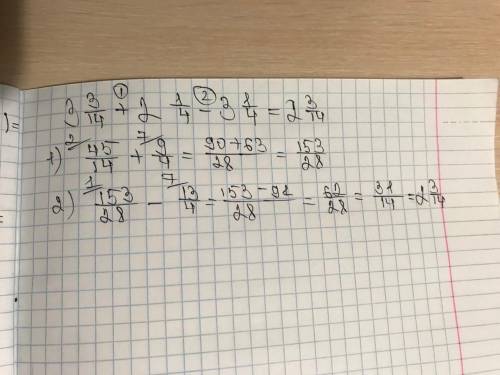 ① ②
3 3/14 + 2 1/4 - 3 1/4 = 2 3/14
)=
2 7
1) 45/14 + 9/4 = 90+63/28 = 153/28
1 7
2) 153/28 - 13/4 = 153-91/28 = 62/28 = 31/14 = 2 3/14